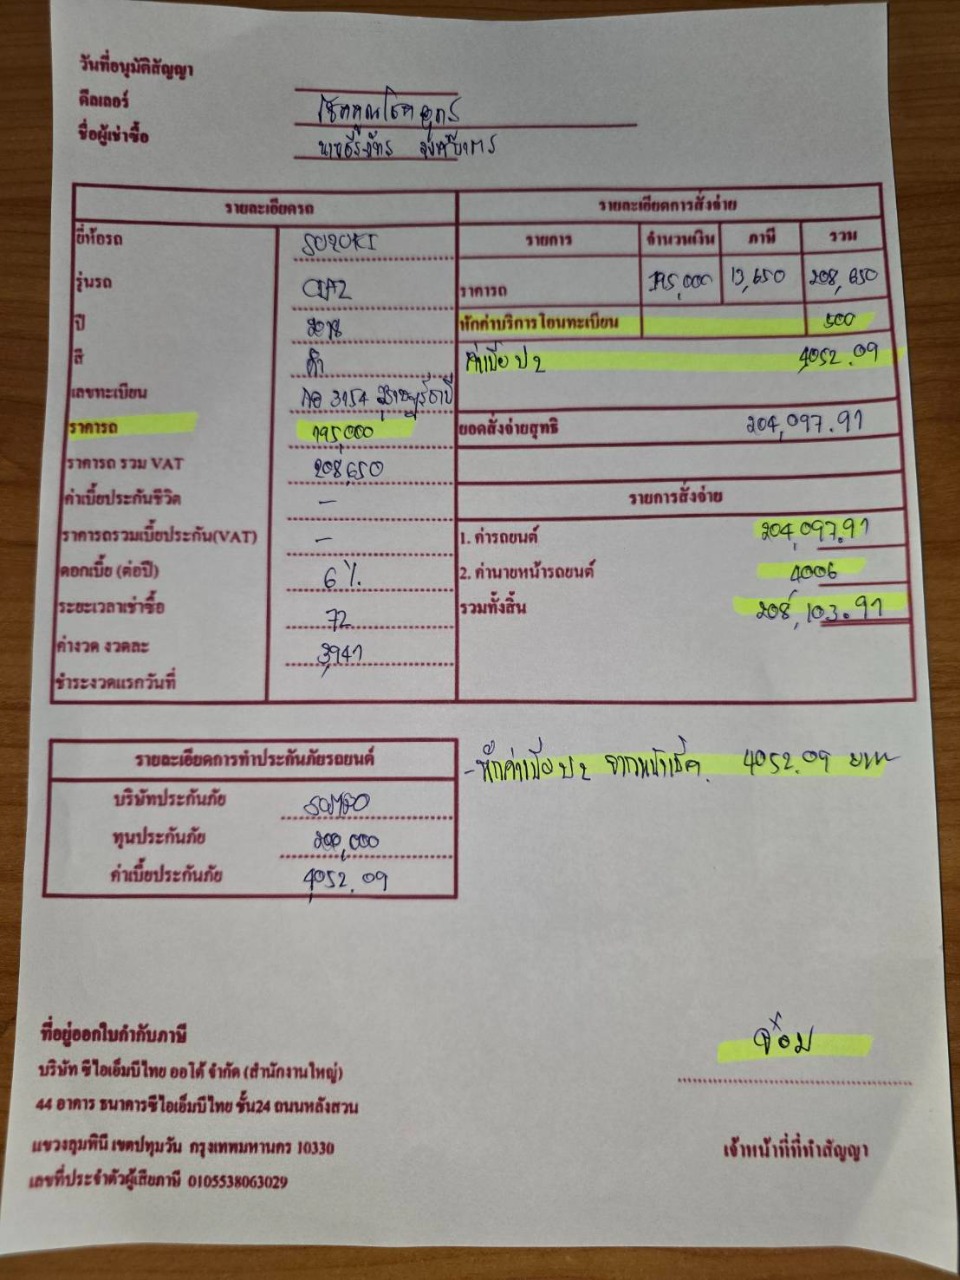 วันที่อนุมัติสัญญา
ดีลเลอร์
ชื่อผู้เช่าซื้อ
รายละเอียดรถ
ยี่ห้อรถ SUZUKI
รุ่นรถ CIAZ
ปี 2018
สี ดำ
เลขทะเบียน 3154 สุราษฎร์ธานี
ราคารถ 195,000
ราคารถ รวม VAT 208,650
ค่าเบี้ยประกันชีวิต –
ราคารถรวมเบี้ยประกัน(VAT) –
ดอกเบี้ย (ต่อปี) 6 %
ระยะเวลาเช่าซื้อ 72
ค่างวด งวดละ 3,947
ชำระงวดแรกวันที่
รายละเอียดการสั่งจ่าย
รายการ จำนวนเงิน ภาษี รวม
ราคารถ 195,000 13,650 208,650
หักค่าบริการโอนทะเบียน 500
ค่าเบี้ย ป2 4052.09
ยอดสั่งจ่ายสุทธิ 204,097.91
รายการสั่งจ่าย
1. ค่ารถยนต์ 204,097.91
2. ค่านายหน้ารถยนต์ 4006
รวมทั้งสิ้น 208,103.91
รายละเอียดการทำประกันภัยรถยนต์
บริษัทประกันภัย SOMPO
ทุนประกันภัย 200,000
ค่าเบี้ยประกันภัย 4052.09
- หักค่าเบี้ย ป2 จากหน้าเช็ค 4052.09 บาท
ที่อยู่ออกใบกำกับภาษี
บริษัท ซีไอเอ็มบีไทย ออโต้ จำกัด (สำนักงานใหญ่)
44 อาคาร ธนาคารซีไอเอ็มบีไทย ชั้น24 ถนนหลังสวน
แขวงลุมพินี เขตปทุมวัน กรุงเทพมหานคร 10330
เลขที่ประจำตัวผู้เสียภาษี 0105538063029
จ๋อม
เจ้าหน้าที่ที่ทำสัญญา